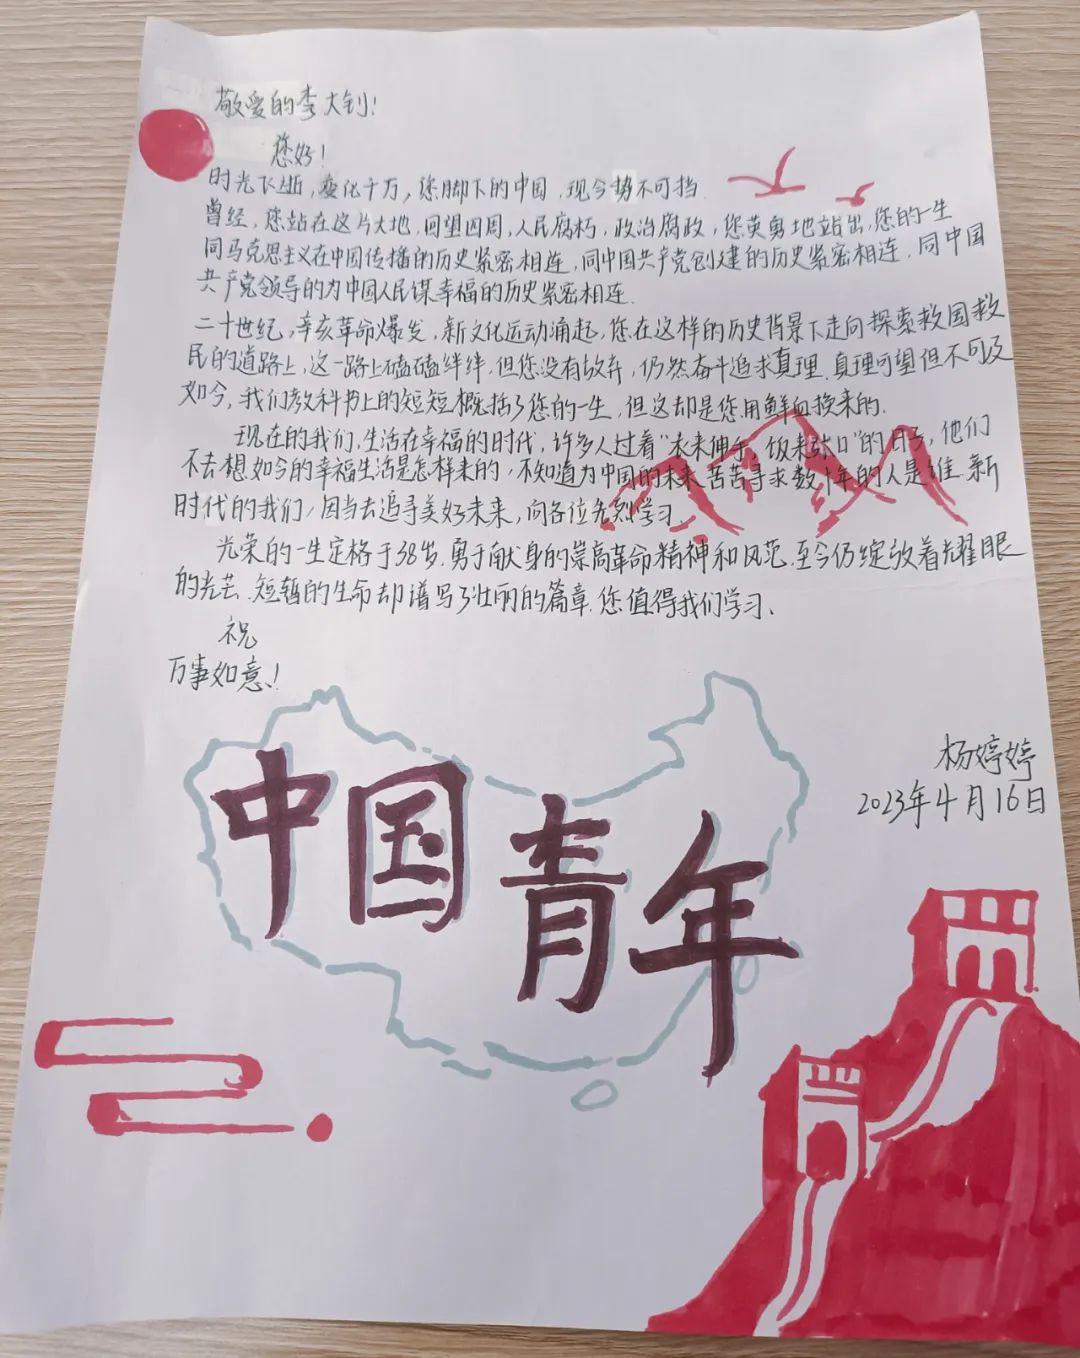 敬爱的李大钊!
您好!
时光飞逝,变化千万,您脚下的中国,现今势不可挡.
曾经,您站在这片大地,回望四周,人民腐朽,政治腐政,您英勇地站出,您的一生
同马克思主义在中国传播的历史紧密相连,同中国共产党创建的历史紧密相连.同中国
共产党领导的为中国人民谋幸福的历史紧密相连.
二十世纪,辛亥革命爆发,新文化运动涌起,您在这样的历史背景下走向探索救国救
民的道路上,这一路上磕磕绊绊,但您没有放弃,仍然奋斗追求真理.真理可望但不可及
如今,我们教科书上的短短概括了您的一生,但这却是您用鲜血换来的.
现在的我们,生活在幸福的时代,许多人过着"衣来伸手,饭来张口"的日子,他们
不去想如今的幸福生活是怎样来的,不知道为中国的未来苦苦寻求数十年的人是谁.新
时代的我们,因当去追寻美好未来,向各位先烈学习.
光荣的一生定格于38岁.勇于献身的崇高革命精神和风范.至今仍绽放着耀眼
的光芒.短暂的生命却谱写了壮丽的篇章.您值得我们学习、
祝
万事如意!
杨婷婷
2023年4月16日
中国青年